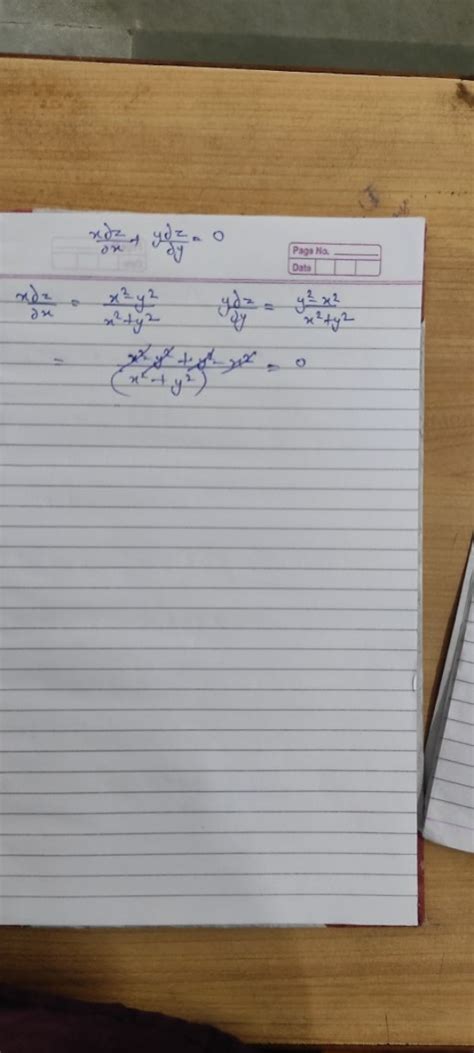 x∂z/∂x + y∂z/∂y = 0
Page No.
Date
x∂z/∂x = x²-y²/x²+y² y∂z/∂y = y²-x²/x²+y²
= x²-y²+y²-x²/(x²+y²) = 0